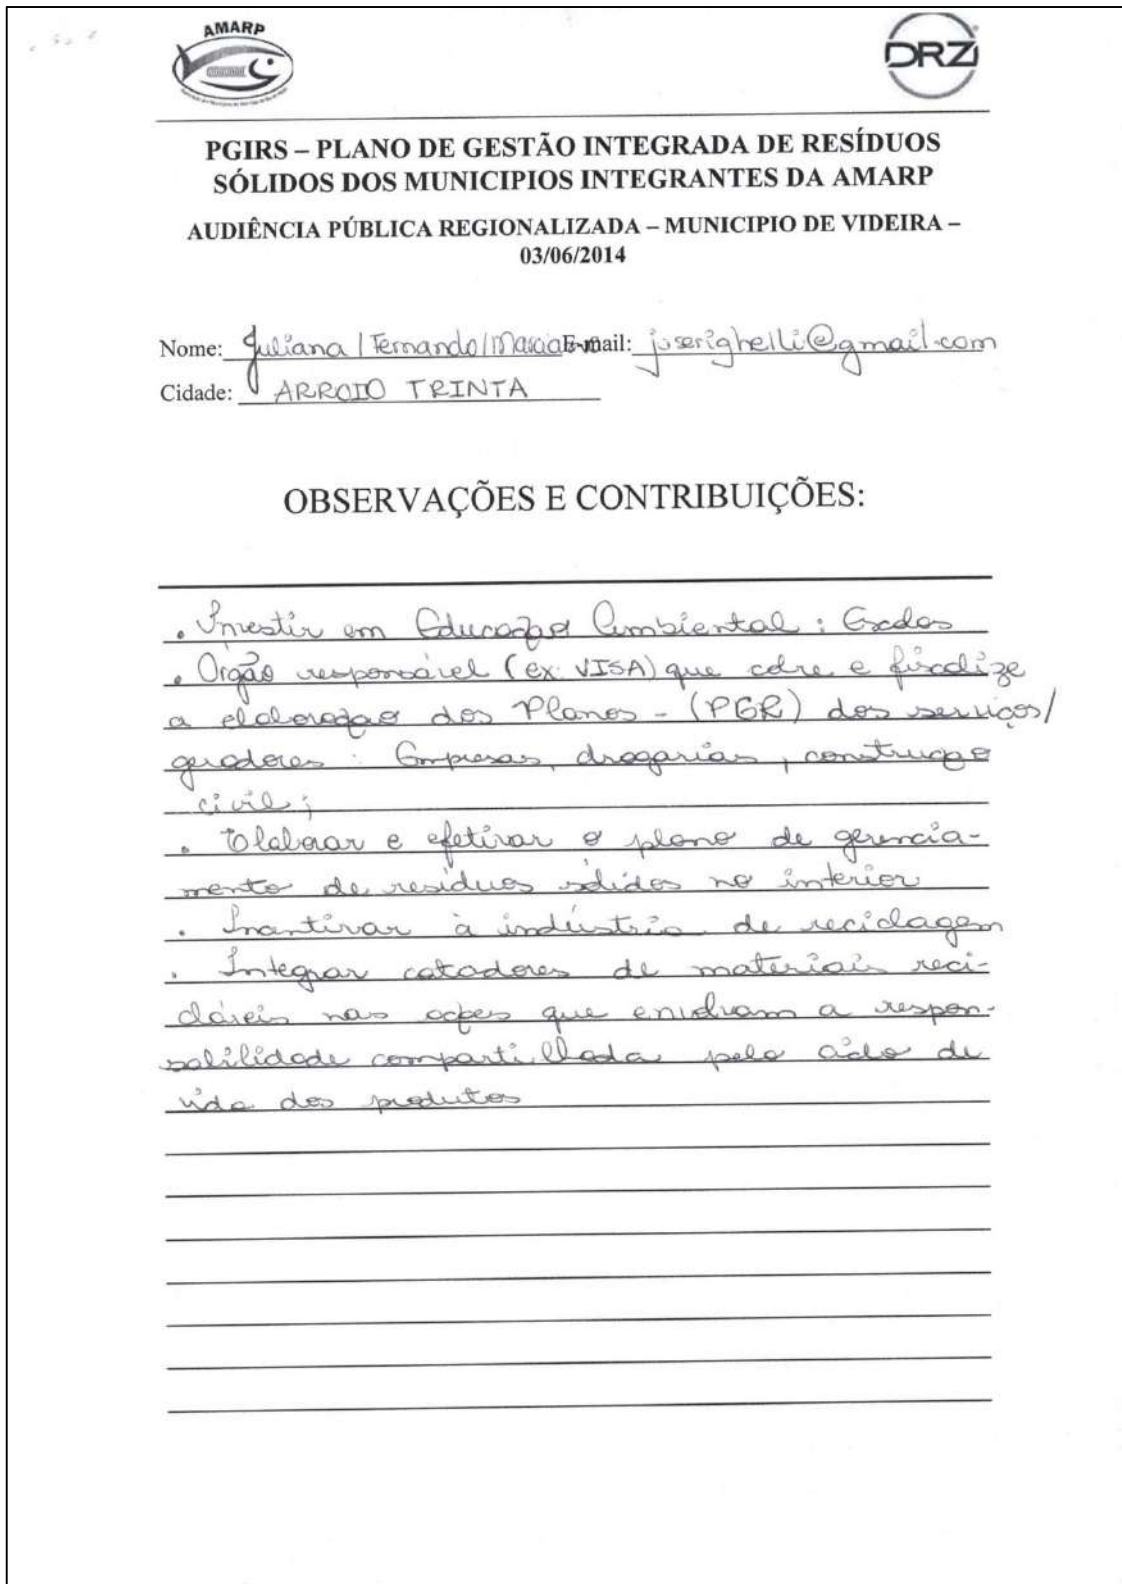 AMARP
DRZ
PGIRS – PLANO DE GESTÃO INTEGRADA DE RESÍDUOS
SÓLIDOS DOS MUNICIPIOS INTEGRANTES DA AMARP
AUDIÊNCIA PÚBLICA REGIONALIZADA – MUNICIPIO DE VIDEIRA –
03/06/2014
Nome: Juliana / Fernando / Marcia E-mail: juserighelli@gmail.com
Cidade: ARROIO TRINTA
OBSERVAÇÕES E CONTRIBUIÇÕES:
. Investir em Educação Ambiental: Escolas
. Orgão responsável (ex: VISA) que cobre e fiscalize
a elaboração dos Planos - (PGR) dos serviços/
geradores: Empresas, drogarias, construção
civil;
. Elaborar e efetivar o plano de gerencia-
mento de resíduos sólidos no interior
. Inantivar à indústria de reciclagem
. Integrar catadores de materiais reci-
cláveis nas ações que envolvam a respon-
sabilidade compartilhada pelo ciclo de
vida dos produtos